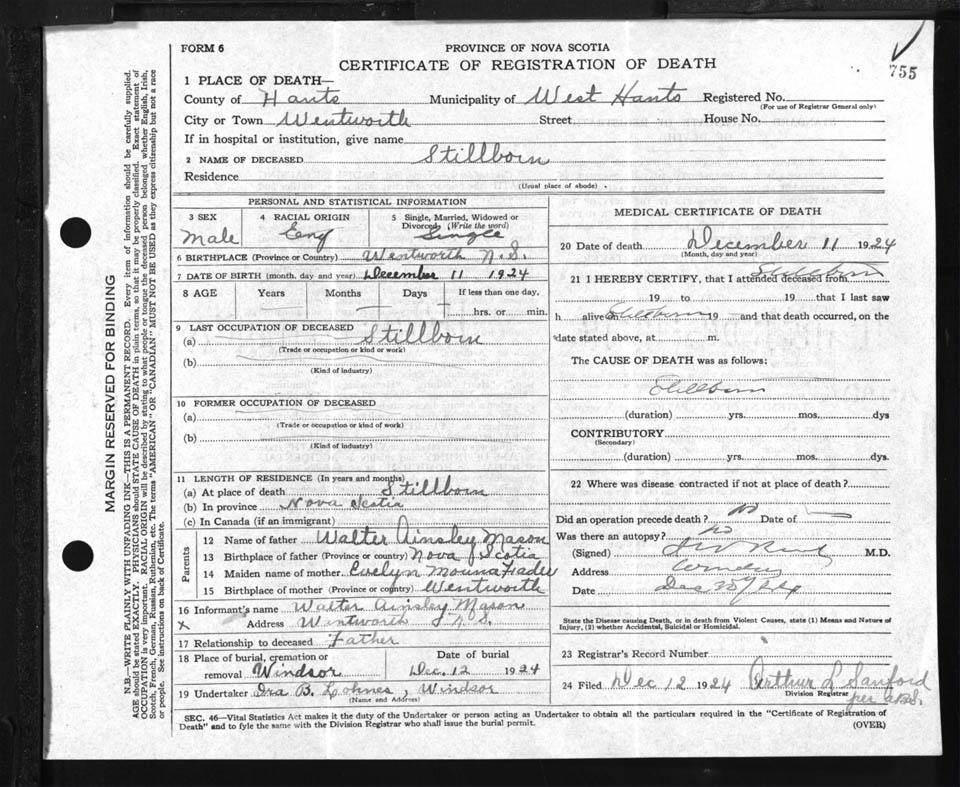 FORM 6
PROVINCE OF NOVA SCOTIA
CERTIFICATE OF REGISTRATION OF DEATH
755
1 PLACE OF DEATH—
County of Hants Municipality of West Hants Registered No.
(For use of Registrar General only)
City or Town Wentworth Street House No.
If in hospital or institution, give name
2 NAME OF DECEASED Stillborn
Residence
(Usual place of abode)
PERSONAL AND STATISTICAL INFORMATION
3 SEX
Male
4 RACIAL ORIGIN
Eng
5 Single, Married, Widowed or
Divorced (Write the word)
Single
6 BIRTHPLACE (Province or Country) Wentworth N.S.
7 DATE OF BIRTH (month, day and year) December 11 1924
8 AGE Years Months Days If less than one day,
hrs. or min.
9 LAST OCCUPATION OF DECEASED
(a) Stillborn
(Trade or occupation or kind or work)
(b)
(Kind of industry)
10 FORMER OCCUPATION OF DECEASED
(a)
(Trade or occupation or kind of work)
(b)
(Kind of industry)
11 LENGTH OF RESIDENCE (In years and months)
(a) At place of death Stillborn
(b) In province Nova Scotia
(c) In Canada (if an immigrant)
Parents
12 Name of father Walter Ainsley Mason
13 Birthplace of father (Province or country) Nova Scotia
14 Maiden name of mother Evelyn
15 Birthplace of mother (Province or country) Wentworth
16 Informant's name Walter Ainsley Mason
X Address Wintworth N.S.
17 Relationship to deceased Father
18 Place of burial, cremation or removal Windsor
Date of burial Dec. 12 1924
19 Undertaker Ira B. Lohnes, Windsor
(Name and Address)
MEDICAL CERTIFICATE OF DEATH
20 Date of death December 11 1924
(Month, day and year)
21 I HEREBY CERTIFY, that I attended deceased from Stillborn
19 to 19 that I last saw
h alive on Stillborn 19 and that death occurred, on the
date stated above, at m.
The CAUSE OF DEATH was as follows:
Stillborn
(duration) yrs. mos. dys
CONTRIBUTORY
(Secondary)
(duration) yrs. mos. dys.
22 Where was disease contracted if not at place of death?
Did an operation precede death? no Date of
Was there an autopsy? no
(Signed) M.D.
Address Windsor
Date Dec
State the Disease causing Death, or in death from Violent Causes, state (1) Means and Nature of
Injury, (2) whether Accidental, Suicidal or Homicidal.
23 Registrar's Record Number
24 Filed Dec 12 1924 Arthur L Sanford
Division Registrar
per
SEC. 46—Vital Statistics Act makes it the duty of the Undertaker or person acting as Undertaker to obtain all the particulars required in the "Certificate of Registration of
Death" and to fyle the same with the Division Registrar who shall issue the burial permit.
(OVER)
MARGIN RESERVED FOR BINDING
N.B.—WRITE PLAINLY WITH UNFADING INK—THIS IS A PERMANENT RECORD. Every item of information should be carefully supplied.
AGE should be stated EXACTLY. PHYSICIANS should STATE CAUSE OF DEATH in plain terms, so that it may be properly classified. Exact statement of
OCCUPATION is very important. RACIAL ORIGIN will be described by stating to what people or tongue the deceased person belonged whether English, Irish,
Scotch, French, German, Russian, Ruthenian, etc. The terms "AMERICAN" OR "CANADIAN" MUST NOT BE USED as they express citizenship but not a race
or people. See instructions on back of Certificate.